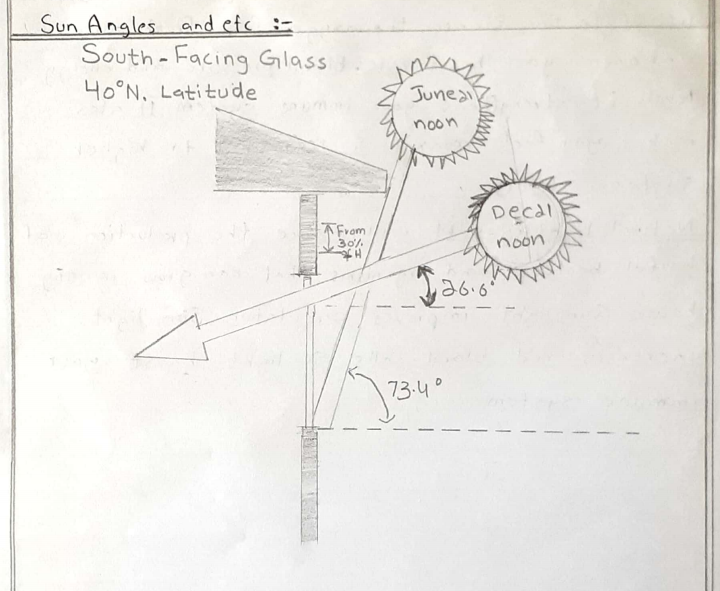 Sun Angles and etc :-
South-Facing Glass
40°N. Latitude
June21
noon
Dec21
noon
From
30%
26.6°
73.4°